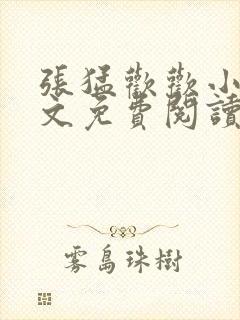 張猛歡歡小
文免費閱讀
雾島珠樹